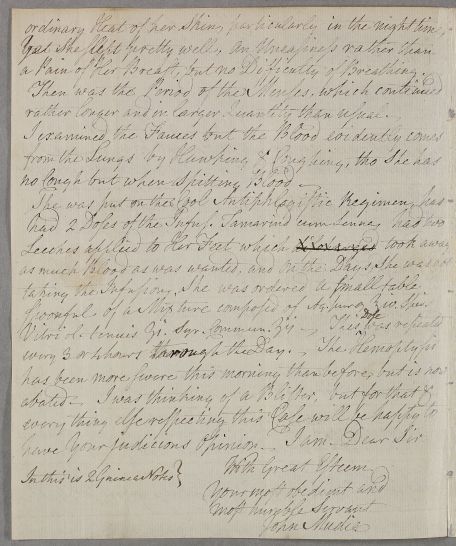 ordinary Heat of her Skin, particularly in the night time,
yet she slept pretty well, an Uneasiness rather than
a Pain of Her Breast, but no Difficulty of Breathing.
Then was the Period of the Menses, which continued
rather longer and in larger Quantity than usual.
I examined the Fauces but the Blood evidently comes
from the Lungs by Hawking & Coughing, tho She has
no Cough but when spitting Blood —
She was put on the Cool Antiphlogistic Regimen, has
had 2 Doses of the Infus. Tamarind cum Senna, had two
Leeches applied to Her Feet which took away
as much Blood as was wanted, and on the Days She was not
taking the Infusion, She was ordered a small table
Spoonful of a Mixture composed of Aq. purae ℥iv. Spir.
Vitriol. tenuis ʒi. Syr. Commun. ℥ij — This Dose was repeated
every 3 or 4 hours through the Day. — The Hemoptysis
has been more severe this morning than before, but is now
abated — I was thinking of a Blister, but for that &
every thing else respecting this Case will be happy to
have Your judicious Opinion — I am Dear Sir
With Great Esteem
Your most obedient and
most humble Servant
John Mudie
In this is 2 Guinea Notes}